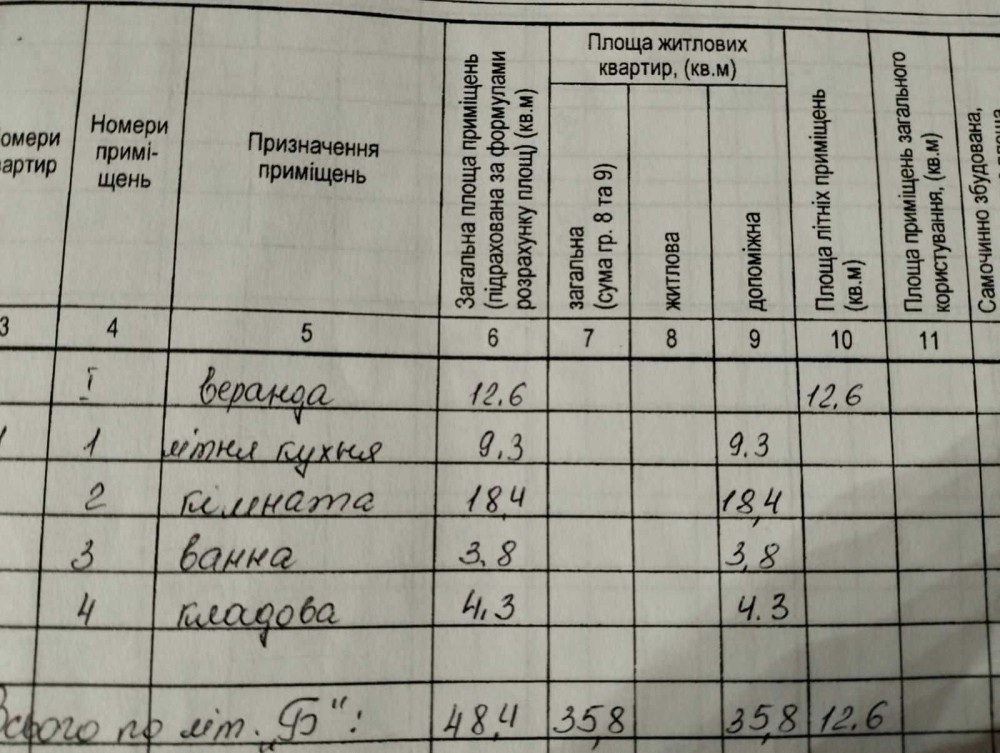 Номери квартир
Номери примі-щень
Призначення приміщень
Загальна площа приміщень (підрахована за формулами розрахунку площ) (кв.м)
Площа житлових квартир, (кв.м)
загальна (сума гр. 8 та 9)
житлова
допоміжна
Площа літніх приміщень (кв.м)
Площа приміщень загального користування, (кв.м)
Самочинно збудована,
3 4 5 6 7 8 9 10 11
I веранда 12.6 12.6
1 1 літня кухня 9.3 9.3
2 кімната 18,4 18,4
3 ванна 3.8 3,8
4 кладова 4.3 4.3
Всього по літ. „Б": 48,4 35,8 35,8 12.6